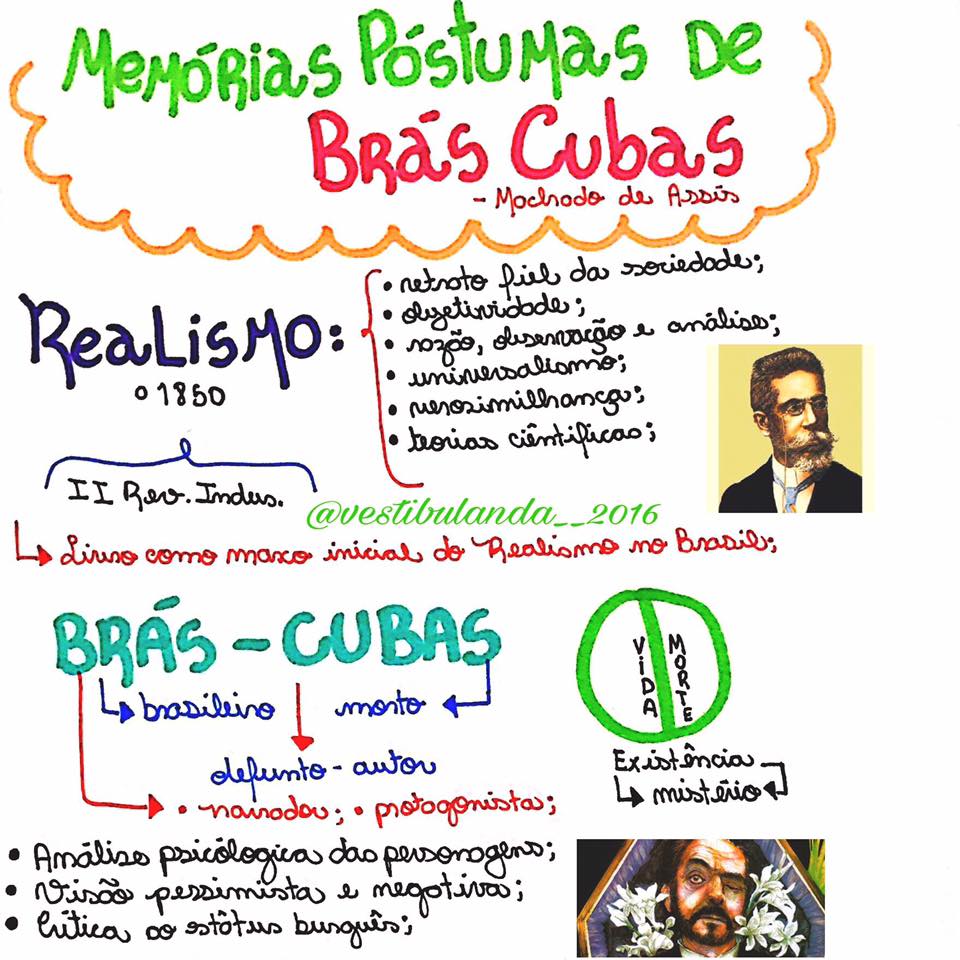 Memórias Póstumas de
Brás Cubas
- Machado de Assis
Realismo:
° 1850
• retrato fiel da sociedade;
• objetividade;
• razão, observação e análise;
• universalismo;
• verossimilhança;
• teorias ciêntíficas;
II Rev. Indus.
@vestibulanda__2016
Livro como marco inicial do Realismo no Brasil;
BRÁS - CUBAS
brasileiro morto
defunto - autor
• narrador; • protagonista;
VIDA
MORTE
Existência
mistério
• Análise psicólogica das personagens;
• Visão pessimista e negativa;
• Crítica ao estátus burguês;